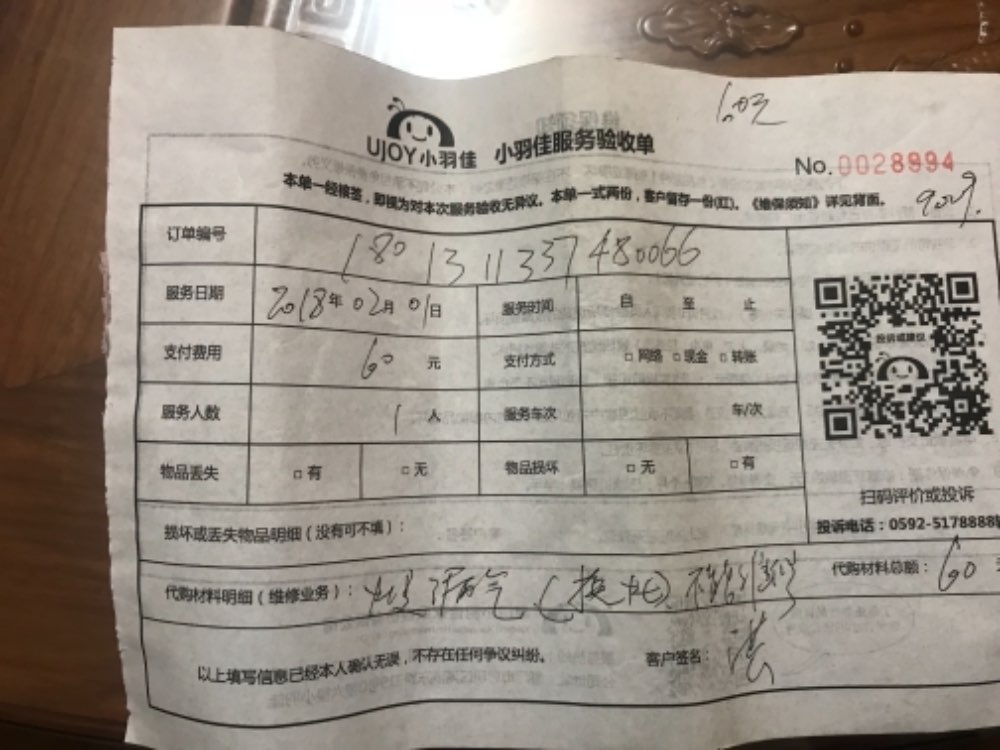 60元
UJOY小羽佳 小羽佳服务验收单
No.0028994
本单一经核签，即视为对本次服务验收无异议。本单一式两份，客户留存一份(红)。《维保须知》详见背面。
订单编号 1801311337480066
服务日期 2018年02月01日 服务时间 自 至 止
支付费用 60元 支付方式 □网络 □现金 □转账
服务人数 1人 服务车次 车/次
物品丢失 □有 □无 物品损坏 □无 □有
投诉或建议
扫码评价或投诉
投诉电话：0592-5178888转
损坏或丢失物品明细（没有可不填）：
代购材料明细（维修业务）： 漏气
代购材料总额： 60
以上填写信息已经本人确认无误，不存在任何争议纠纷。 客户签名： 洪